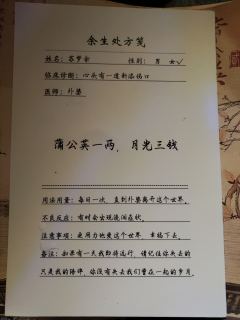 余生处方笺
姓名：苏梦余 性别：男 女✓
临床诊断：心头有一道新添伤口
医师：外婆
蒲公英一两，月光三钱
用法用量：每日一次，直到外婆离开这个世界。
不良反应：有时会出现流泪症状。
注意事项：更用力地爱这个世界，幸福下去。
备注：如果有一天我即将远行，请记住你失去的
只是我的陪伴，你没有失去我们曾在一起的岁月。